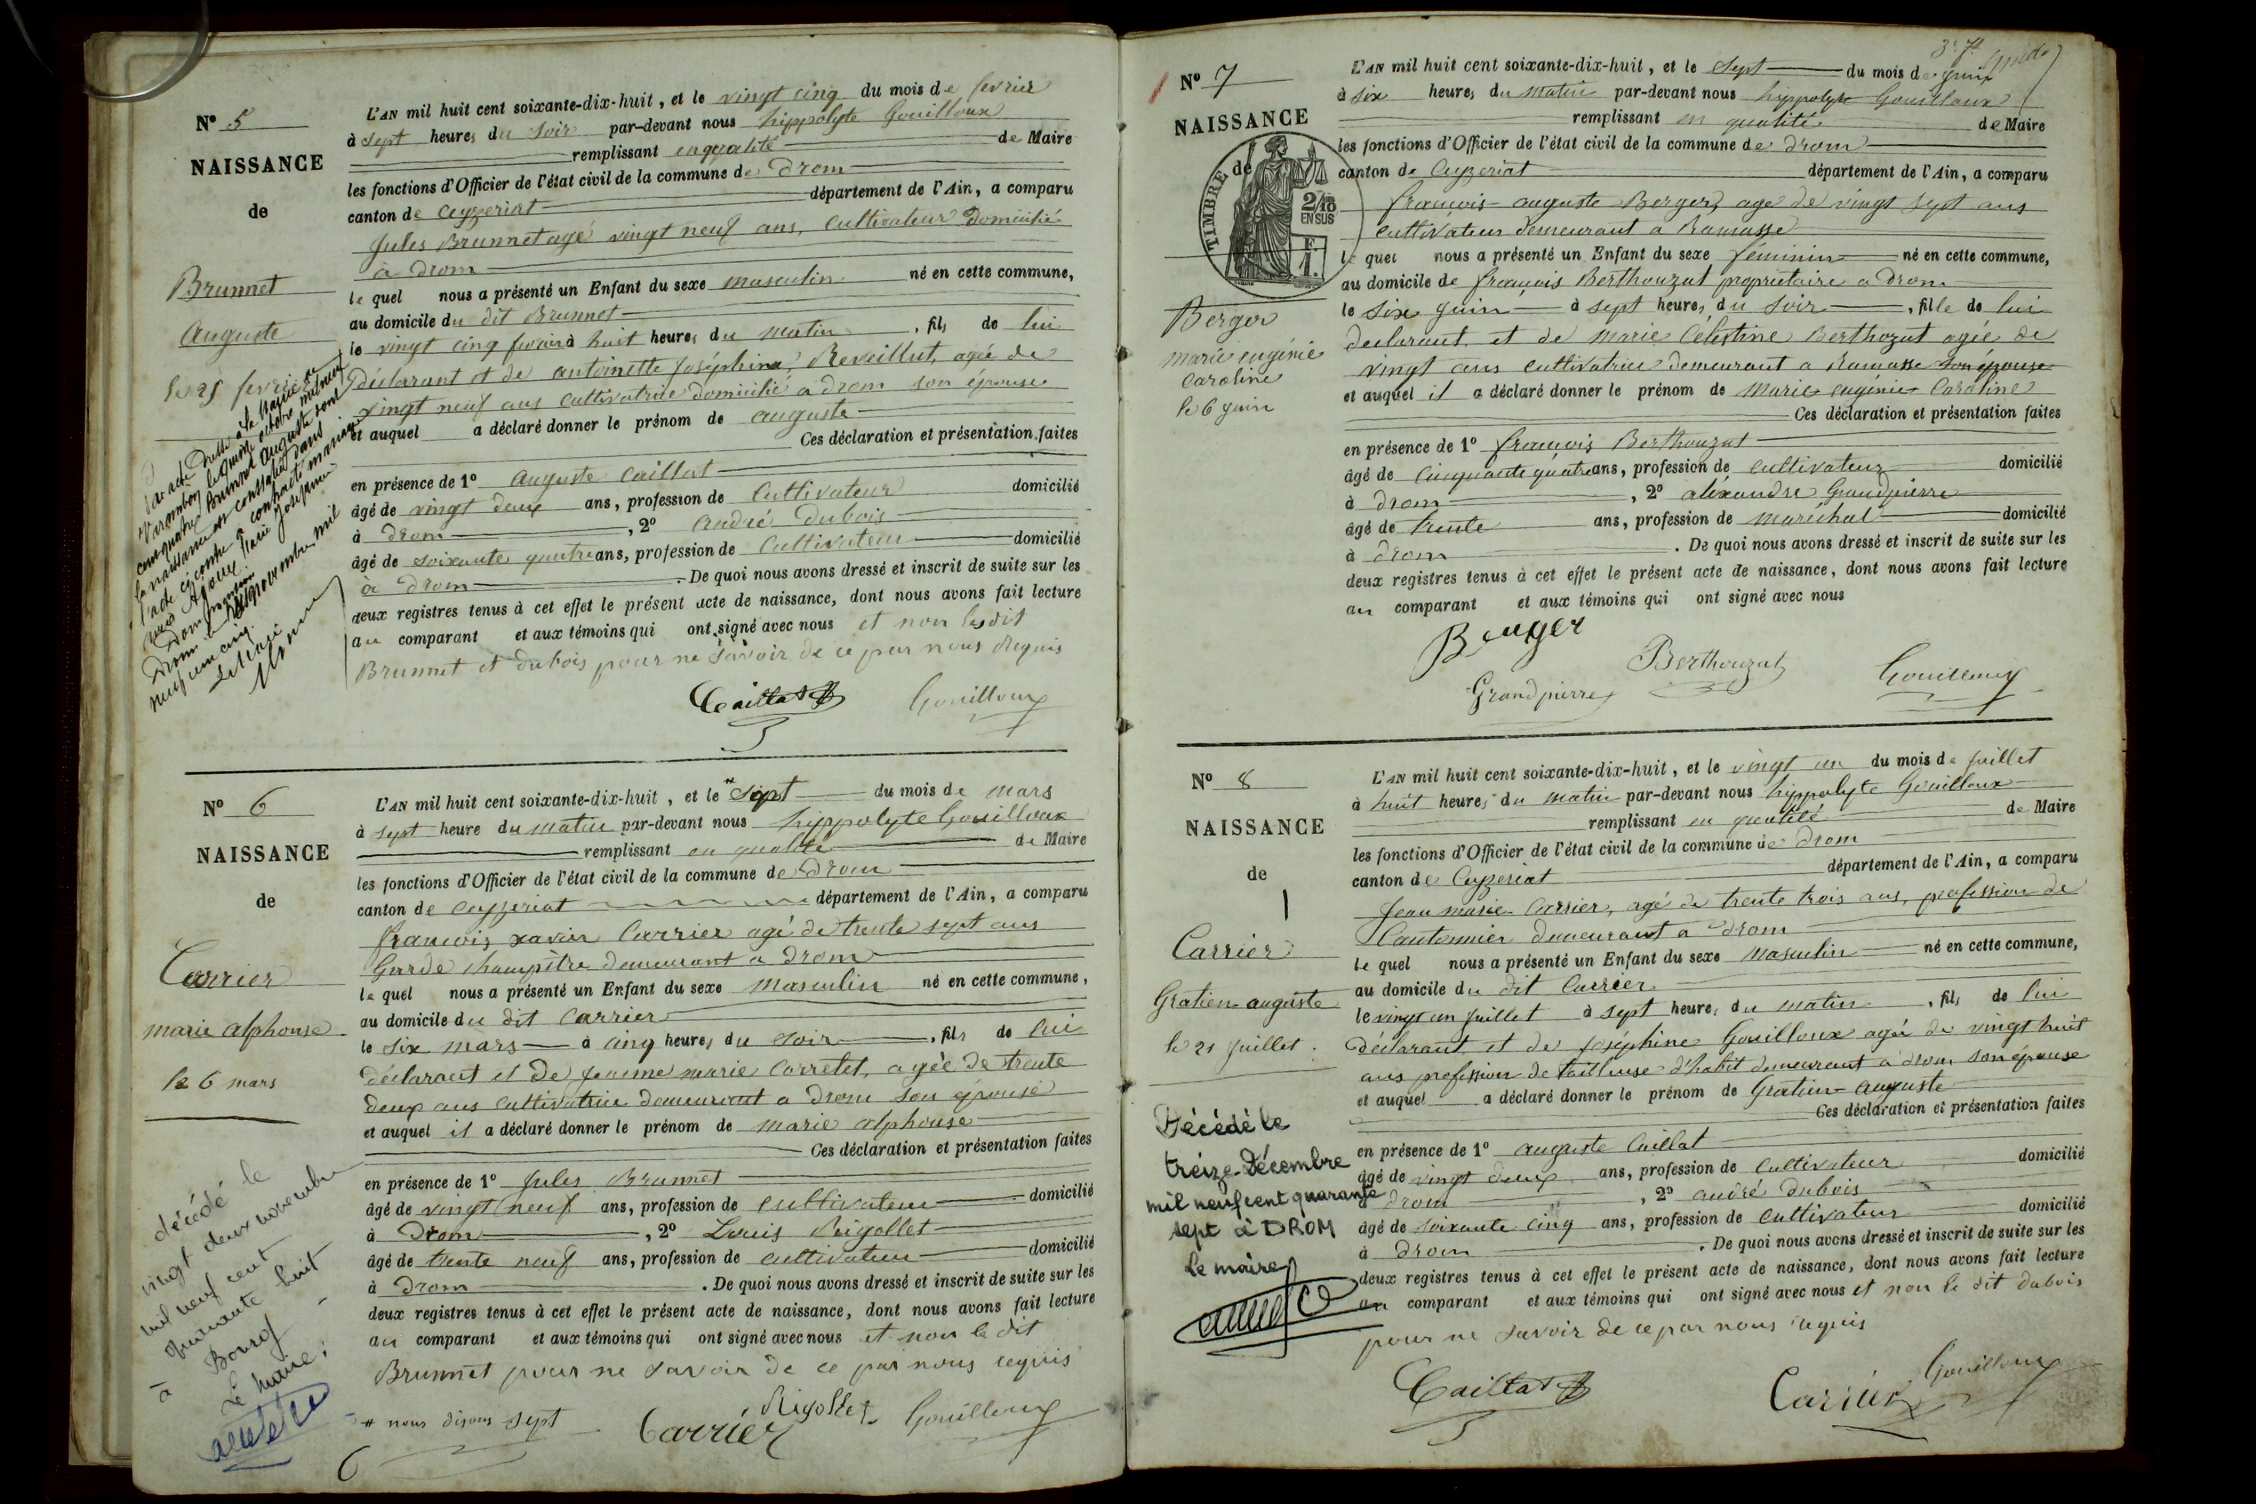 N° 5
NAISSANCE
de
Brunnet
Auguste
le 25 fevrier
L'AN mil huit cent soixante-dix-huit, et le vingt cinq du mois de fevrier
à sept heures du soir par-devant nous hippolyte Gouilloux
remplissant en qualité de Maire
les fonctions d'Officier de l'état civil de la commune de Drom
canton de Ceyzeriat département de l'Ain, a comparu
Jules Brunnet agé vingt neuf ans, cultivateur domicilié
à Drom
le quel nous a présenté un Enfant du sexe masculin né en cette commune,
au domicile du dit Brunnet
le vingt cinq fevrier à huit heures du matin, fils de lui
déclarant et de antoinette Joséphine Reveillut, agée de
vingt neuf ans cultivatrice domicilié a Drom son épouse
et auquel a déclaré donner le prénom de auguste
Ces déclaration et présentation faites
en présence de 1° Auguste Caillat
âgé de vingt deux ans, profession de Cultivateur domicilié
à Drom, 2° andré Dubois
âgé de soixante quatre ans, profession de Cultivateur domicilié
à Drom. De quoi nous avons dressé et inscrit de suite sur les
deux registres tenus à cet effet le présent acte de naissance, dont nous avons fait lecture
au comparant et aux témoins qui ont signé avec nous et non les dit
Brunnet et dubois pour ne savoir de ce par nous requis
Caillat Gouilloux
N° 6
NAISSANCE
de
Carrier
marie alphonse
le 6 mars
décédé le
vingt deux novembre
mil neuf cent
quarante huit
à Bourg
Le maire:
L'AN mil huit cent soixante-dix-huit, et le * sept du mois de mars
à sept heure du matin par-devant nous hippolyte Gouilloux
remplissant en qualité de Maire
les fonctions d'Officier de l'état civil de la commune de Drom
canton de Ceyzeriat département de l'Ain, a comparu
francois xavier Carrier agé de trente sept ans
Garde champêtre demeurant a Drom
le quel nous a présenté un Enfant du sexe Masculin né en cette commune,
au domicile du dit Carrier
le six mars à cinq heures du soir, fils de lui
déclarant et de Jeanne marie Carretet, agée de trente
deux ans cultivatrice demeurant a Drom son épouse
et auquel il a déclaré donner le prénom de marie alphonse
Ces déclaration et présentation faites
en présence de 1° Jules Brunnet
âgé de vingt neuf ans, profession de cultivateur domicilié
à Drom, 2° Louis Rigollet
âgé de trente neuf ans, profession de cultivateur domicilié
à Drom. De quoi nous avons dressé et inscrit de suite sur les
deux registres tenus à cet effet le présent acte de naissance, dont nous avons fait lecture
au comparant et aux témoins qui ont signé avec nous et non le dit
Brunnet pour ne savoir de ce par nous requis
* nous disons sept Carrier Rigollet Gouilloux
N° 7
NAISSANCE
de
TIMBRE
2/10
EN SUS
F.
1.
Berger
marie eugénie
Caroline
le 6 juin
L'AN mil huit cent soixante-dix-huit, et le sept du mois de juin
à six heures du matin par-devant nous hippolyte Gouilloux
remplissant en qualité de Maire
les fonctions d'Officier de l'état civil de la commune de Drom
canton de Ceyzeriat département de l'Ain, a comparu
francois auguste Berger, agé de vingt sept ans
cultivateur demeurant a Ramasse
le quel nous a présenté un Enfant du sexe féminin né en cette commune,
au domicile de francois Berthouzat propriétaire a Drom
le six juin à sept heures du soir, fille de lui
declarant et de marie Celestine Berthozat agée de
vingt ans cultivatrice demeurant a Ramasse son épouse
et auquel il a déclaré donner le prénom de Marie eugénie Caroline
Ces déclaration et présentation faites
en présence de 1° francois Berthouzat
âgé de cinquante quatre ans, profession de cultivateur domicilié
à Drom, 2° aléxandre Grandpierre
âgé de trente ans, profession de maréchal domicilié
à Drom. De quoi nous avons dressé et inscrit de suite sur les
deux registres tenus à cet effet le présent acte de naissance, dont nous avons fait lecture
au comparant et aux témoins qui ont signé avec nous
Berger
Grandpierre Berthouzat Gouilloux
N° 8
NAISSANCE
de
Carrier
Gratien auguste
le 21 juillet.
Décédé le
treize Décembre
mil neuf cent quarante
sept à DROM
le maire
L'AN mil huit cent soixante-dix-huit, et le vingt un du mois de juillet
à huit heures du matin par-devant nous hippolyte Gouilloux
remplissant en qualité de Maire
les fonctions d'Officier de l'état civil de la commune de Drom
canton de Ceyzeriat département de l'Ain, a comparu
Jean marie Carrier, agé de trente trois ans, profession de
Cantonnier demeurant a Drom
le quel nous a présenté un Enfant du sexe Masculin né en cette commune,
au domicile du dit Carrier
le vingt un juillet à sept heures du matin, fils de lui
déclarant et de joséphine Gouilloux agée de vingt huit
ans profession de tailleuse d'habit demeurant a Drom son épouse
et auquel a déclaré donner le prénom de Gratien-auguste
Ces déclaration et présentation faites
en présence de 1° auguste Caillat
âgé de vingt deux ans, profession de cultivateur domicilié
à Drom, 2° andré Dubois
âgé de soixante cinq ans, profession de cultivateur domicilié
à Drom. De quoi nous avons dressé et inscrit de suite sur les
deux registres tenus à cet effet le présent acte de naissance, dont nous avons fait lecture
au comparant et aux témoins qui ont signé avec nous et non le dit dubois
pour ne savoir de ce par nous requis
Caillat Carrier Gouilloux